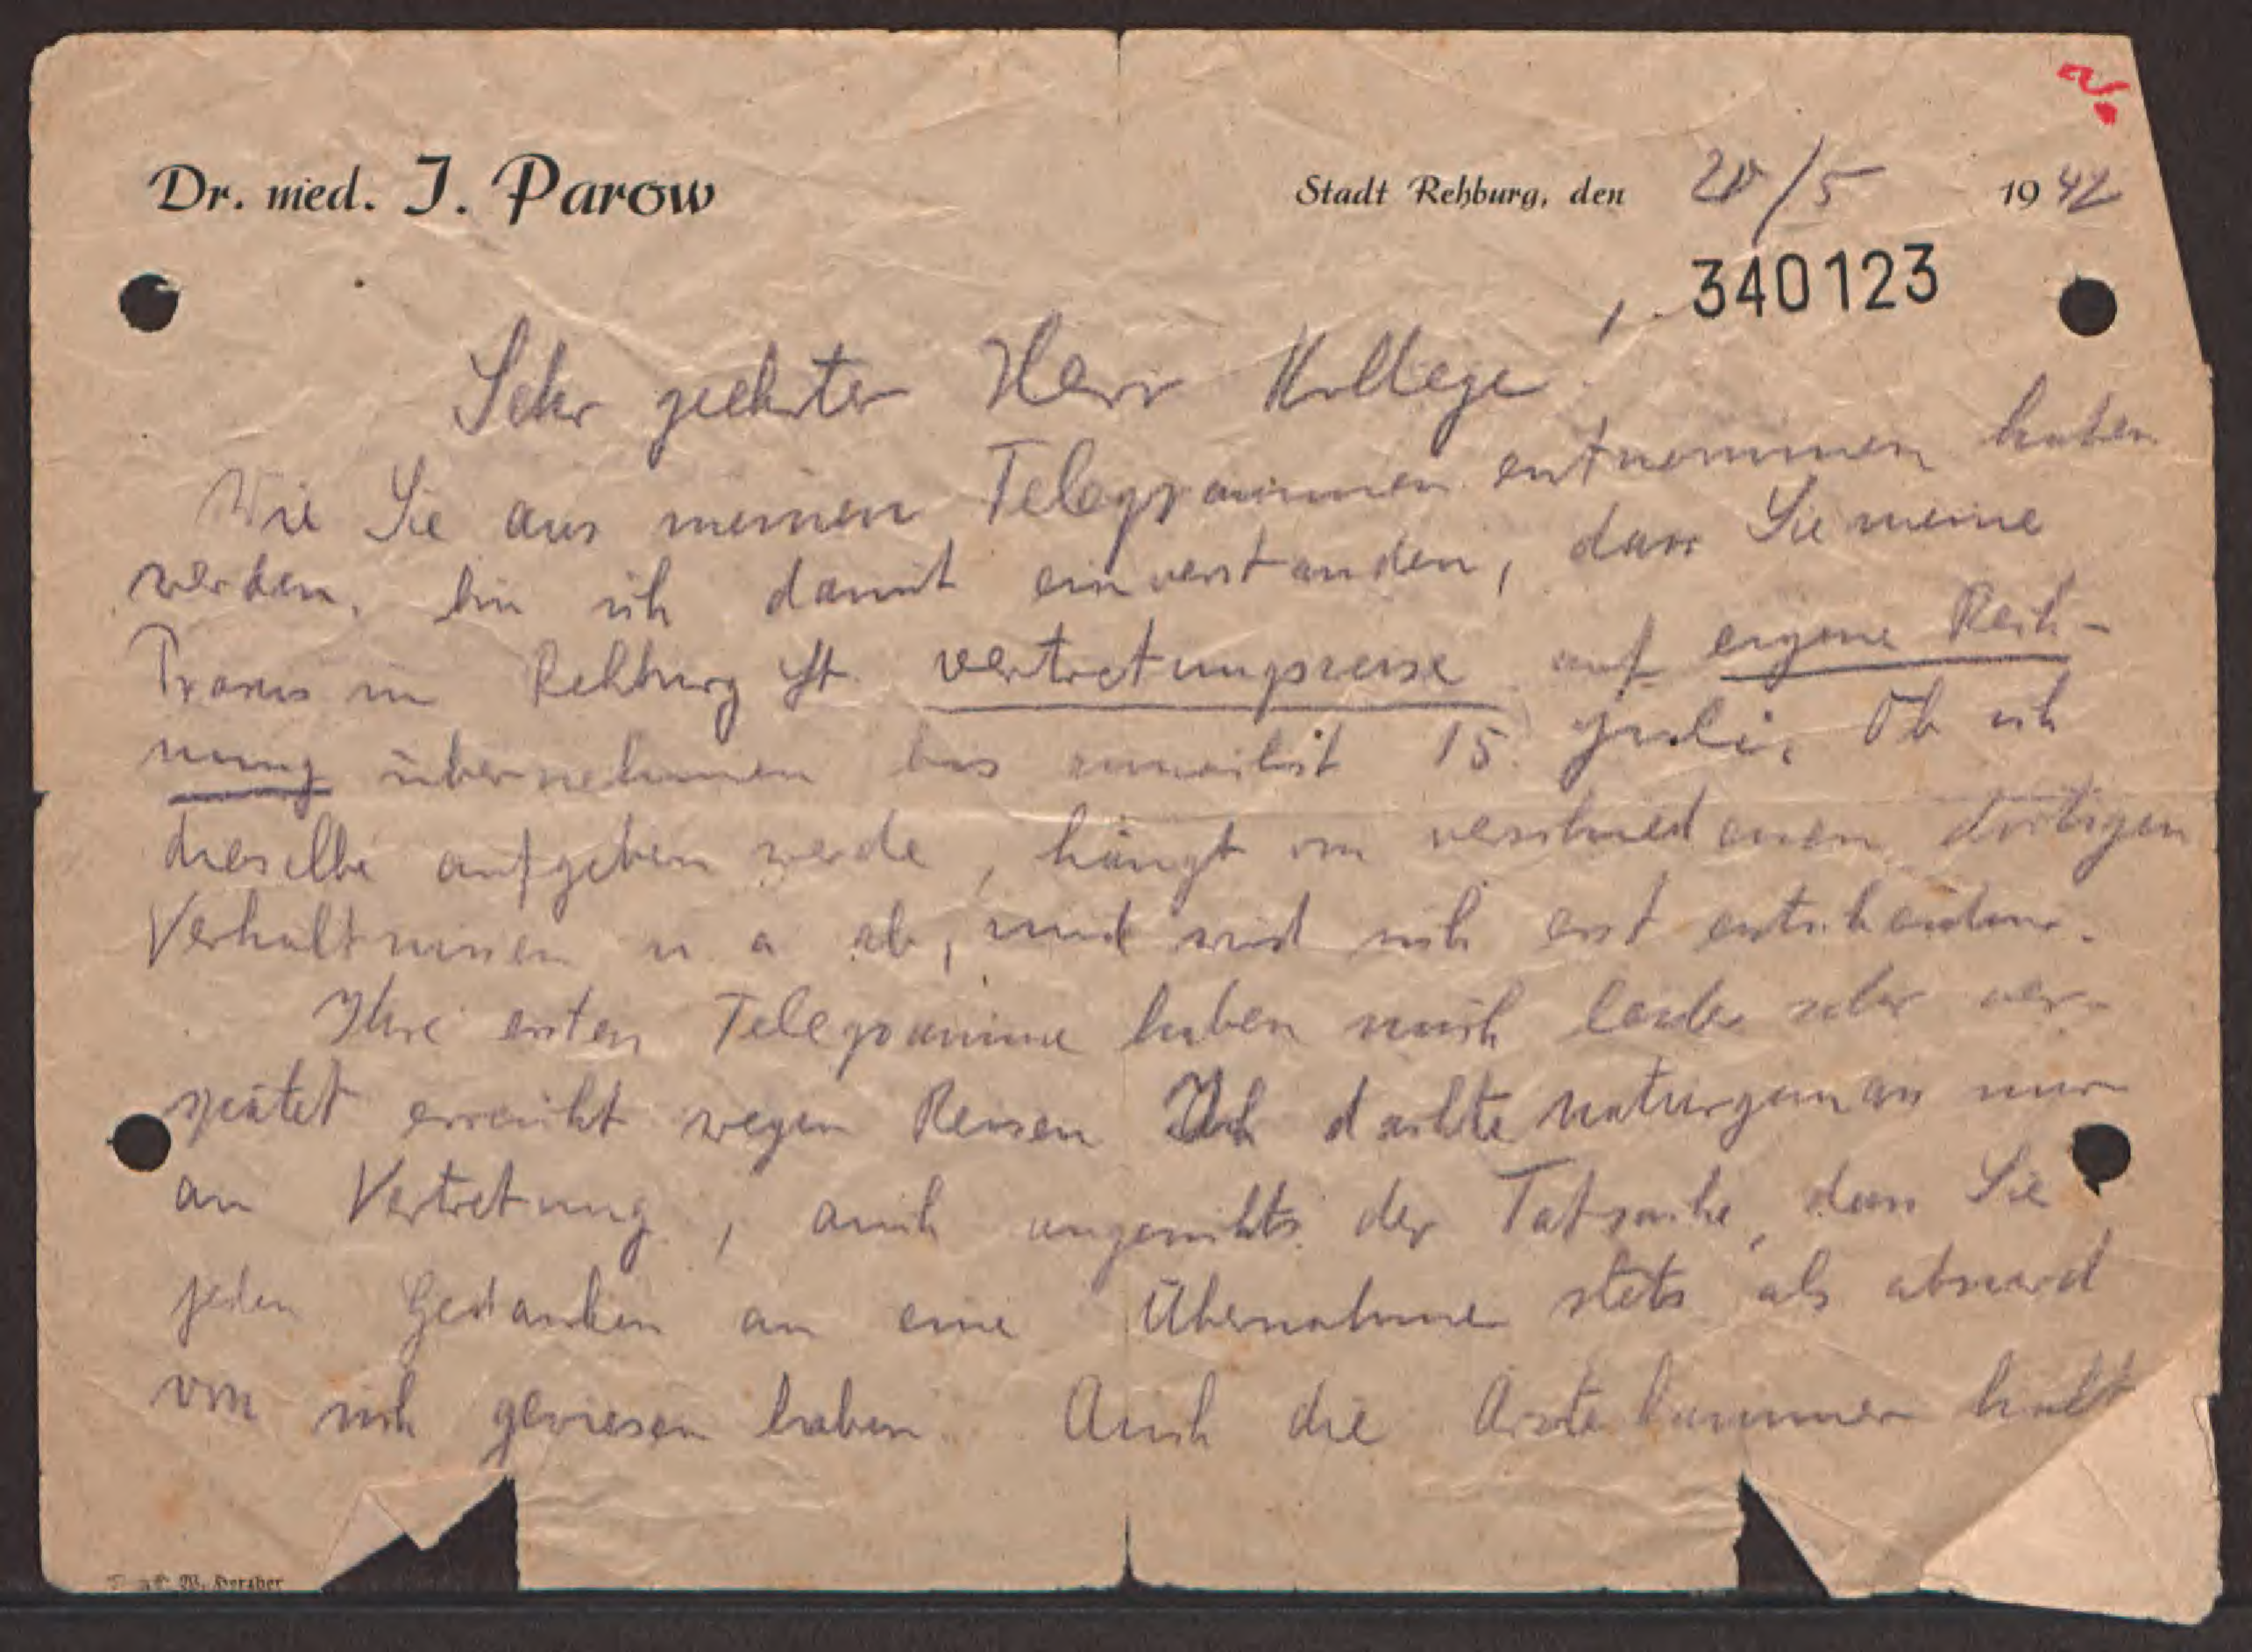 Dr. med. J. Parow
Stadt Rehburg, den 20/5 1942
340123
Sehr geehrter Herr Kollege!
Wie Sie aus meinen Telegrammen entnommen haben
werden, bin ich damit einverstanden, dass Sie meine
Praxis in Rehburg St. vertretungsweise auf eigene Rech-
nung übernehmen bis zumeilst 15. Juli. Ob ich
dieselbe aufgeben werde, hängt von verschiedenen dortigen
Verhältnissen u. a ab, und wird sich erst entscheiden.
Ihre ersten Telegramme haben mich leider sehr ver-
spätet erreicht wegen Reisen Ich dachte naturgemäss nur
an Vertretung, auch angesichts der Tatsache, dass Sie
jeden Gedanken an eine Übernahme stets als absurd
von sich gewiesen haben. Auch die Ärztekammer hält
W. Hersber